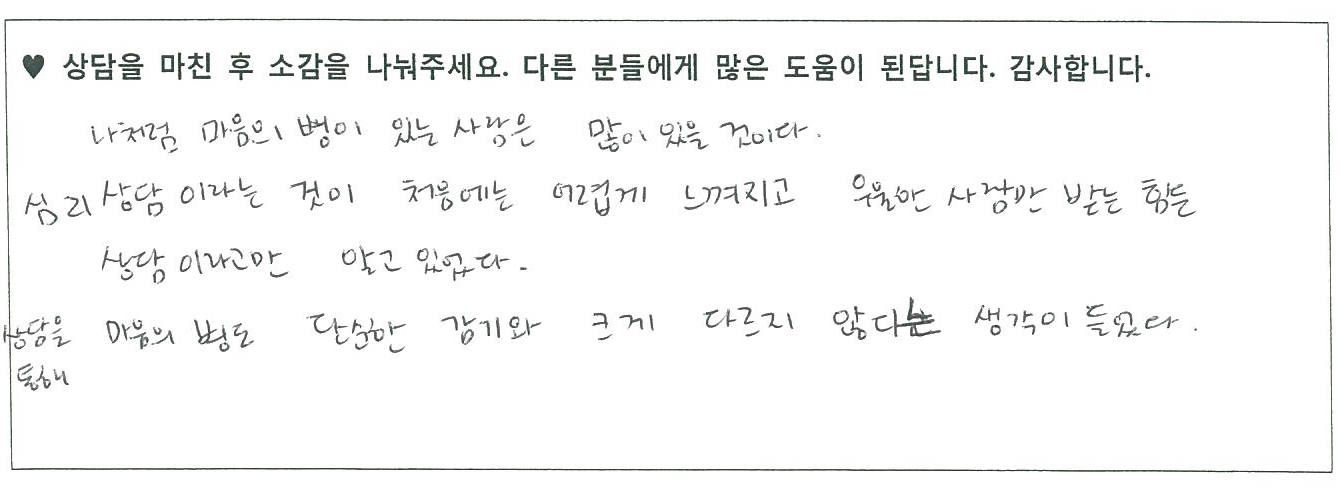 ♥ 상담을 마친 후 소감을 나눠주세요. 다른 분들에게 많은 도움이 된답니다. 감사합니다.
나처럼 마음의 병이 있는 사람은 많이 있을 것이다.
심리 상담이라는 것이 처음에는 어렵게 느껴지고 우울한 사람만 받는 힘든
상담이라고만 알고 있었다.
상담을 마음의 병도 단순한 감기와 크게 다르지 않다는 생각이 들었다.
통해